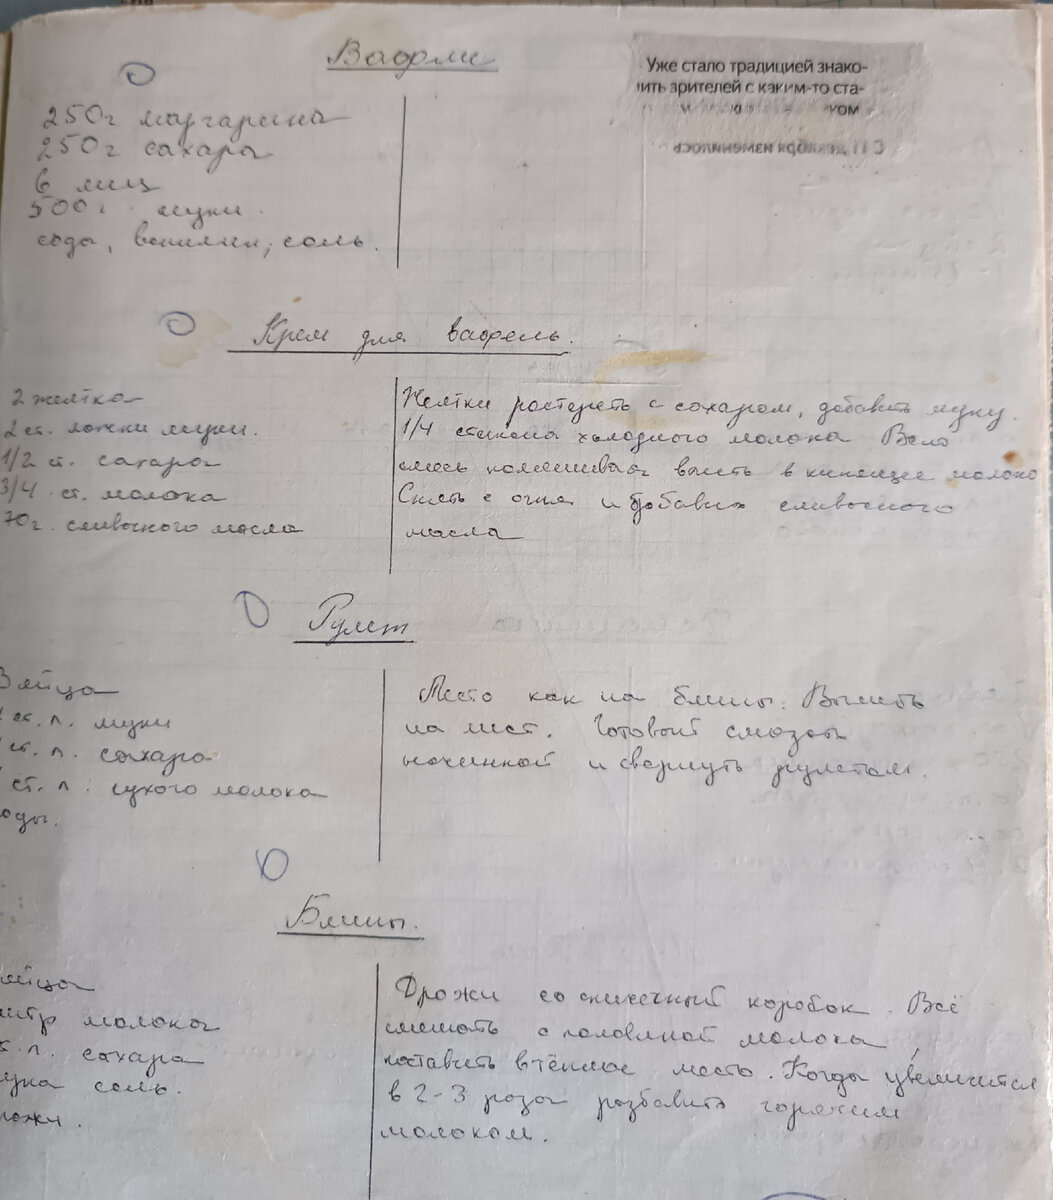 Вафли
Уже стало традицией знако-
ить зрителей с каким-то ста-
250г маргарина
250г сахара
6 яиц
500г. муки.
сода, ванилин, соль.
Крем для вафель.
2 желтка
2 ст. ложки муки.
1/2 ст. сахара
3/4 ст. молока
70г. сливочного масла
Желтки растереть с сахаром, добавить муку.
1/4 стакана холодного молока Всю
смесь помешивая вылить в кипящее молоко
Снять с огня и добавить сливочного
масла
Рулет
3 яйца
ст. л. муки
ст. л. сахара
ст. л. сухого молока
оды.
Тесто как на блины. Вылить
на лист. Готовый смазать
начинкой и свернуть рулетом.
Блины.
яйца
итр молока
т. л. сахара
ука соль.
рожжи.
Дрожи со спичечный коробок. Всё
смешать с половиной молока,
поставить в тёплое место. Когда увеличится
в 2-3 раза разбавить горячим
молоком.